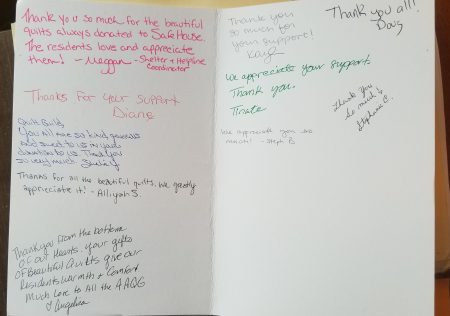 Thank you so much for the beautiful
quilts always donated to SafeHouse.
The residents love and appreciate
them! - Meggan - Shelter + Helpline
Coordinator
Thanks For Your Support
Diane
Quilt Guild,
You all are so kind, generous
and sweet to us in your
donations to us. Thank You
so very much.
Thanks for all the beautiful quilts. We greatly
appreciate it! - Alliyah S.
Thank you from the bottom
of our Hearts. your gifts
of Beautiful Quilts give our
Residents warmth + Comfort
Much Love to All the AAQG
Angelina
Thank you
so much for
your support!
Kayla
Thank you all!
Doug
We appreciate your support.
Thank you.
Thank You
So much!
Stephanie C.
We appreciate you so
much! - Steph B